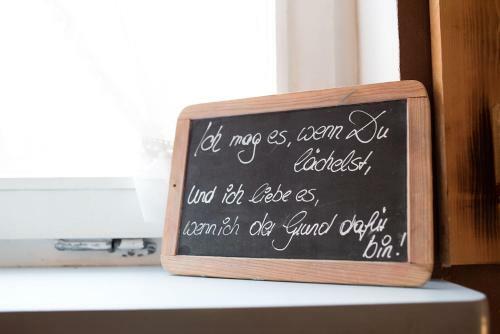 Ich mag es, wenn Du
lächelst,
und ich liebe es,
wenn ich der Grund dafür
bin!